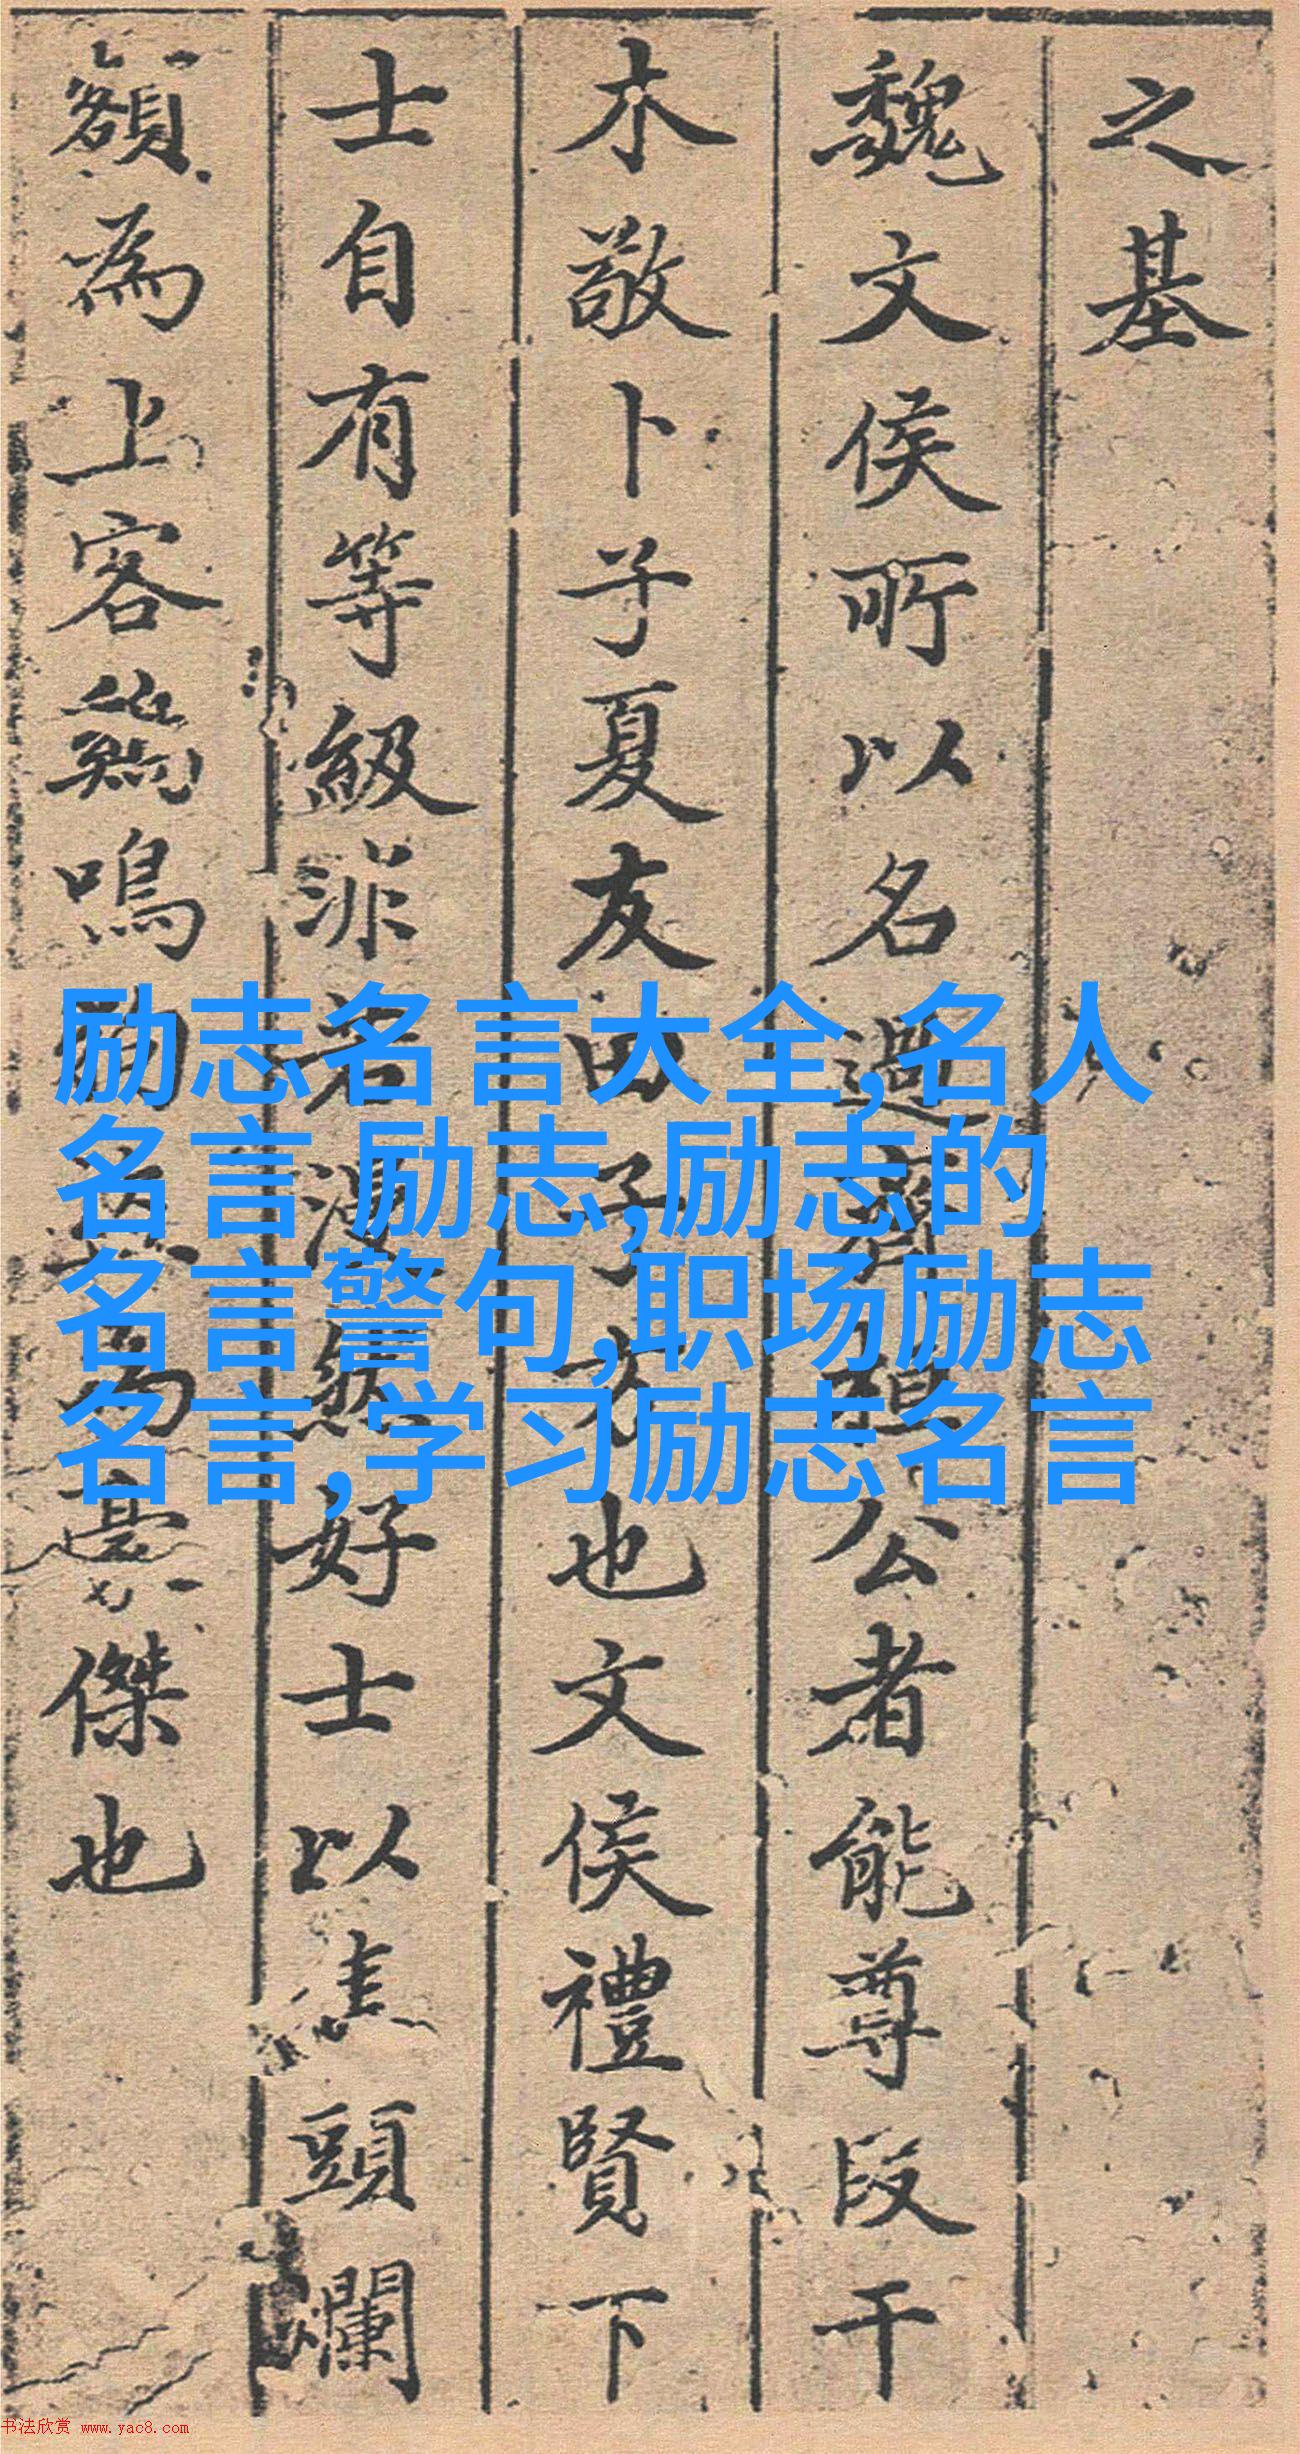 之基
魏文侯所以名過齊桓公者能尊段干
木敬卜子夏友田子方也文侯禮賢下
士自有等級非若漫然好士以焦頭爛
額為上客鷄鳴狗盜為豪傑也
励志名言大全,名人
名言 励志,励志的
名言警句,职场励志
名言,学习励志名言
书法欣赏 www.yac8.com